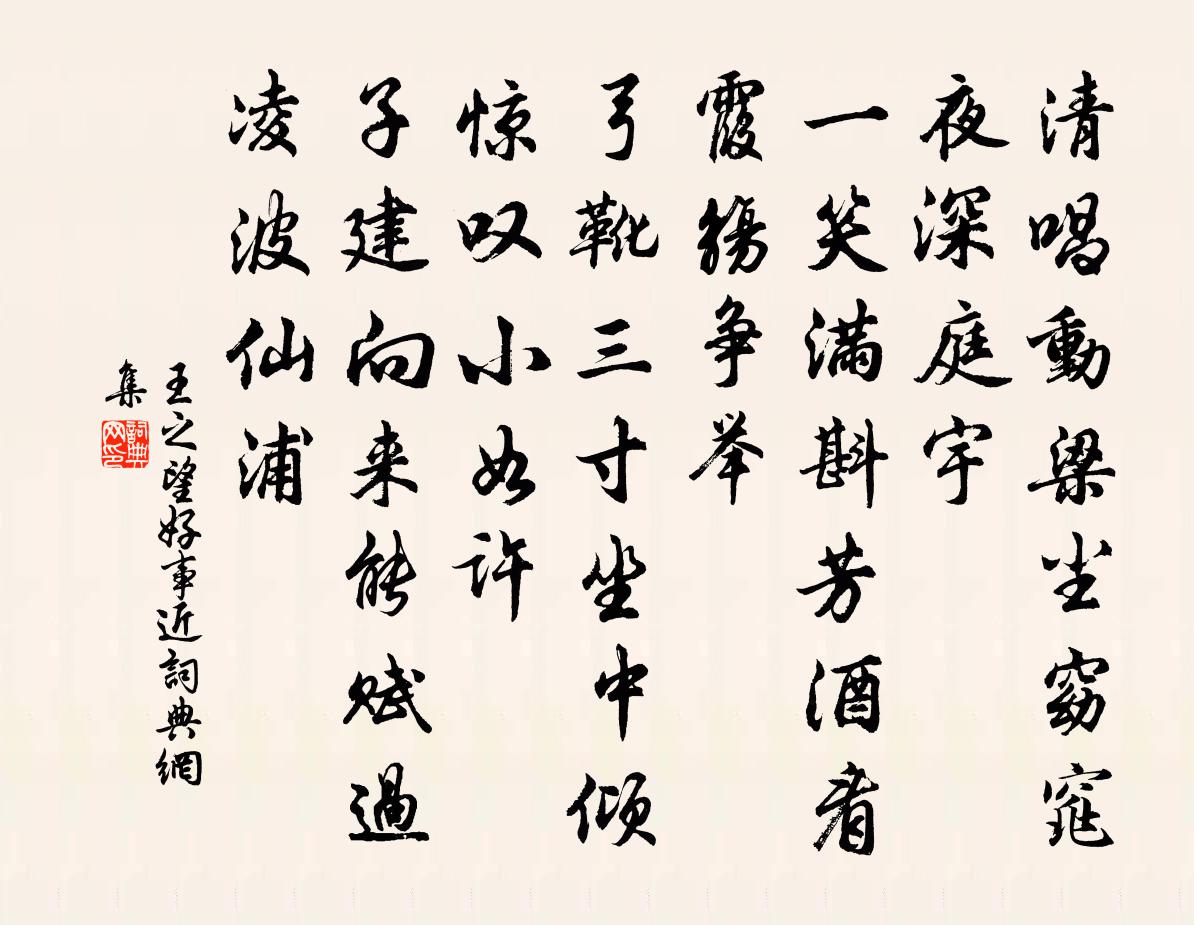 清唱動梁尘窈窕
夜深庭宇
一笑满斟芳酒看
霞觞争举
弓靴三寸坐中倾
惊叹小如许
子建向来能赋過
凌波仙浦
王之望好事近詞典網
集
詞典
网印